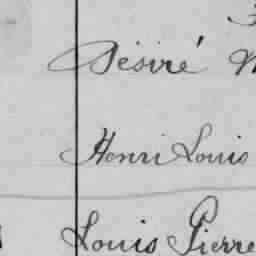 Désiré
Henri Louis
Louis Pierre